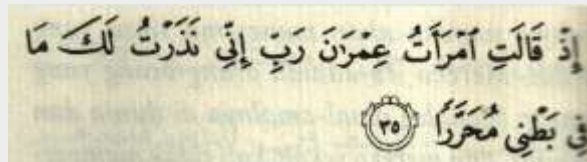 إِذْ قَالَتِ ٱمْرَأَتُ عِمْرَٰنَ رَبِّ إِنِّي نَذَرْتُ لَكَ مَا
فِي بَطْنِي مُحَرَّرًا ٣٥